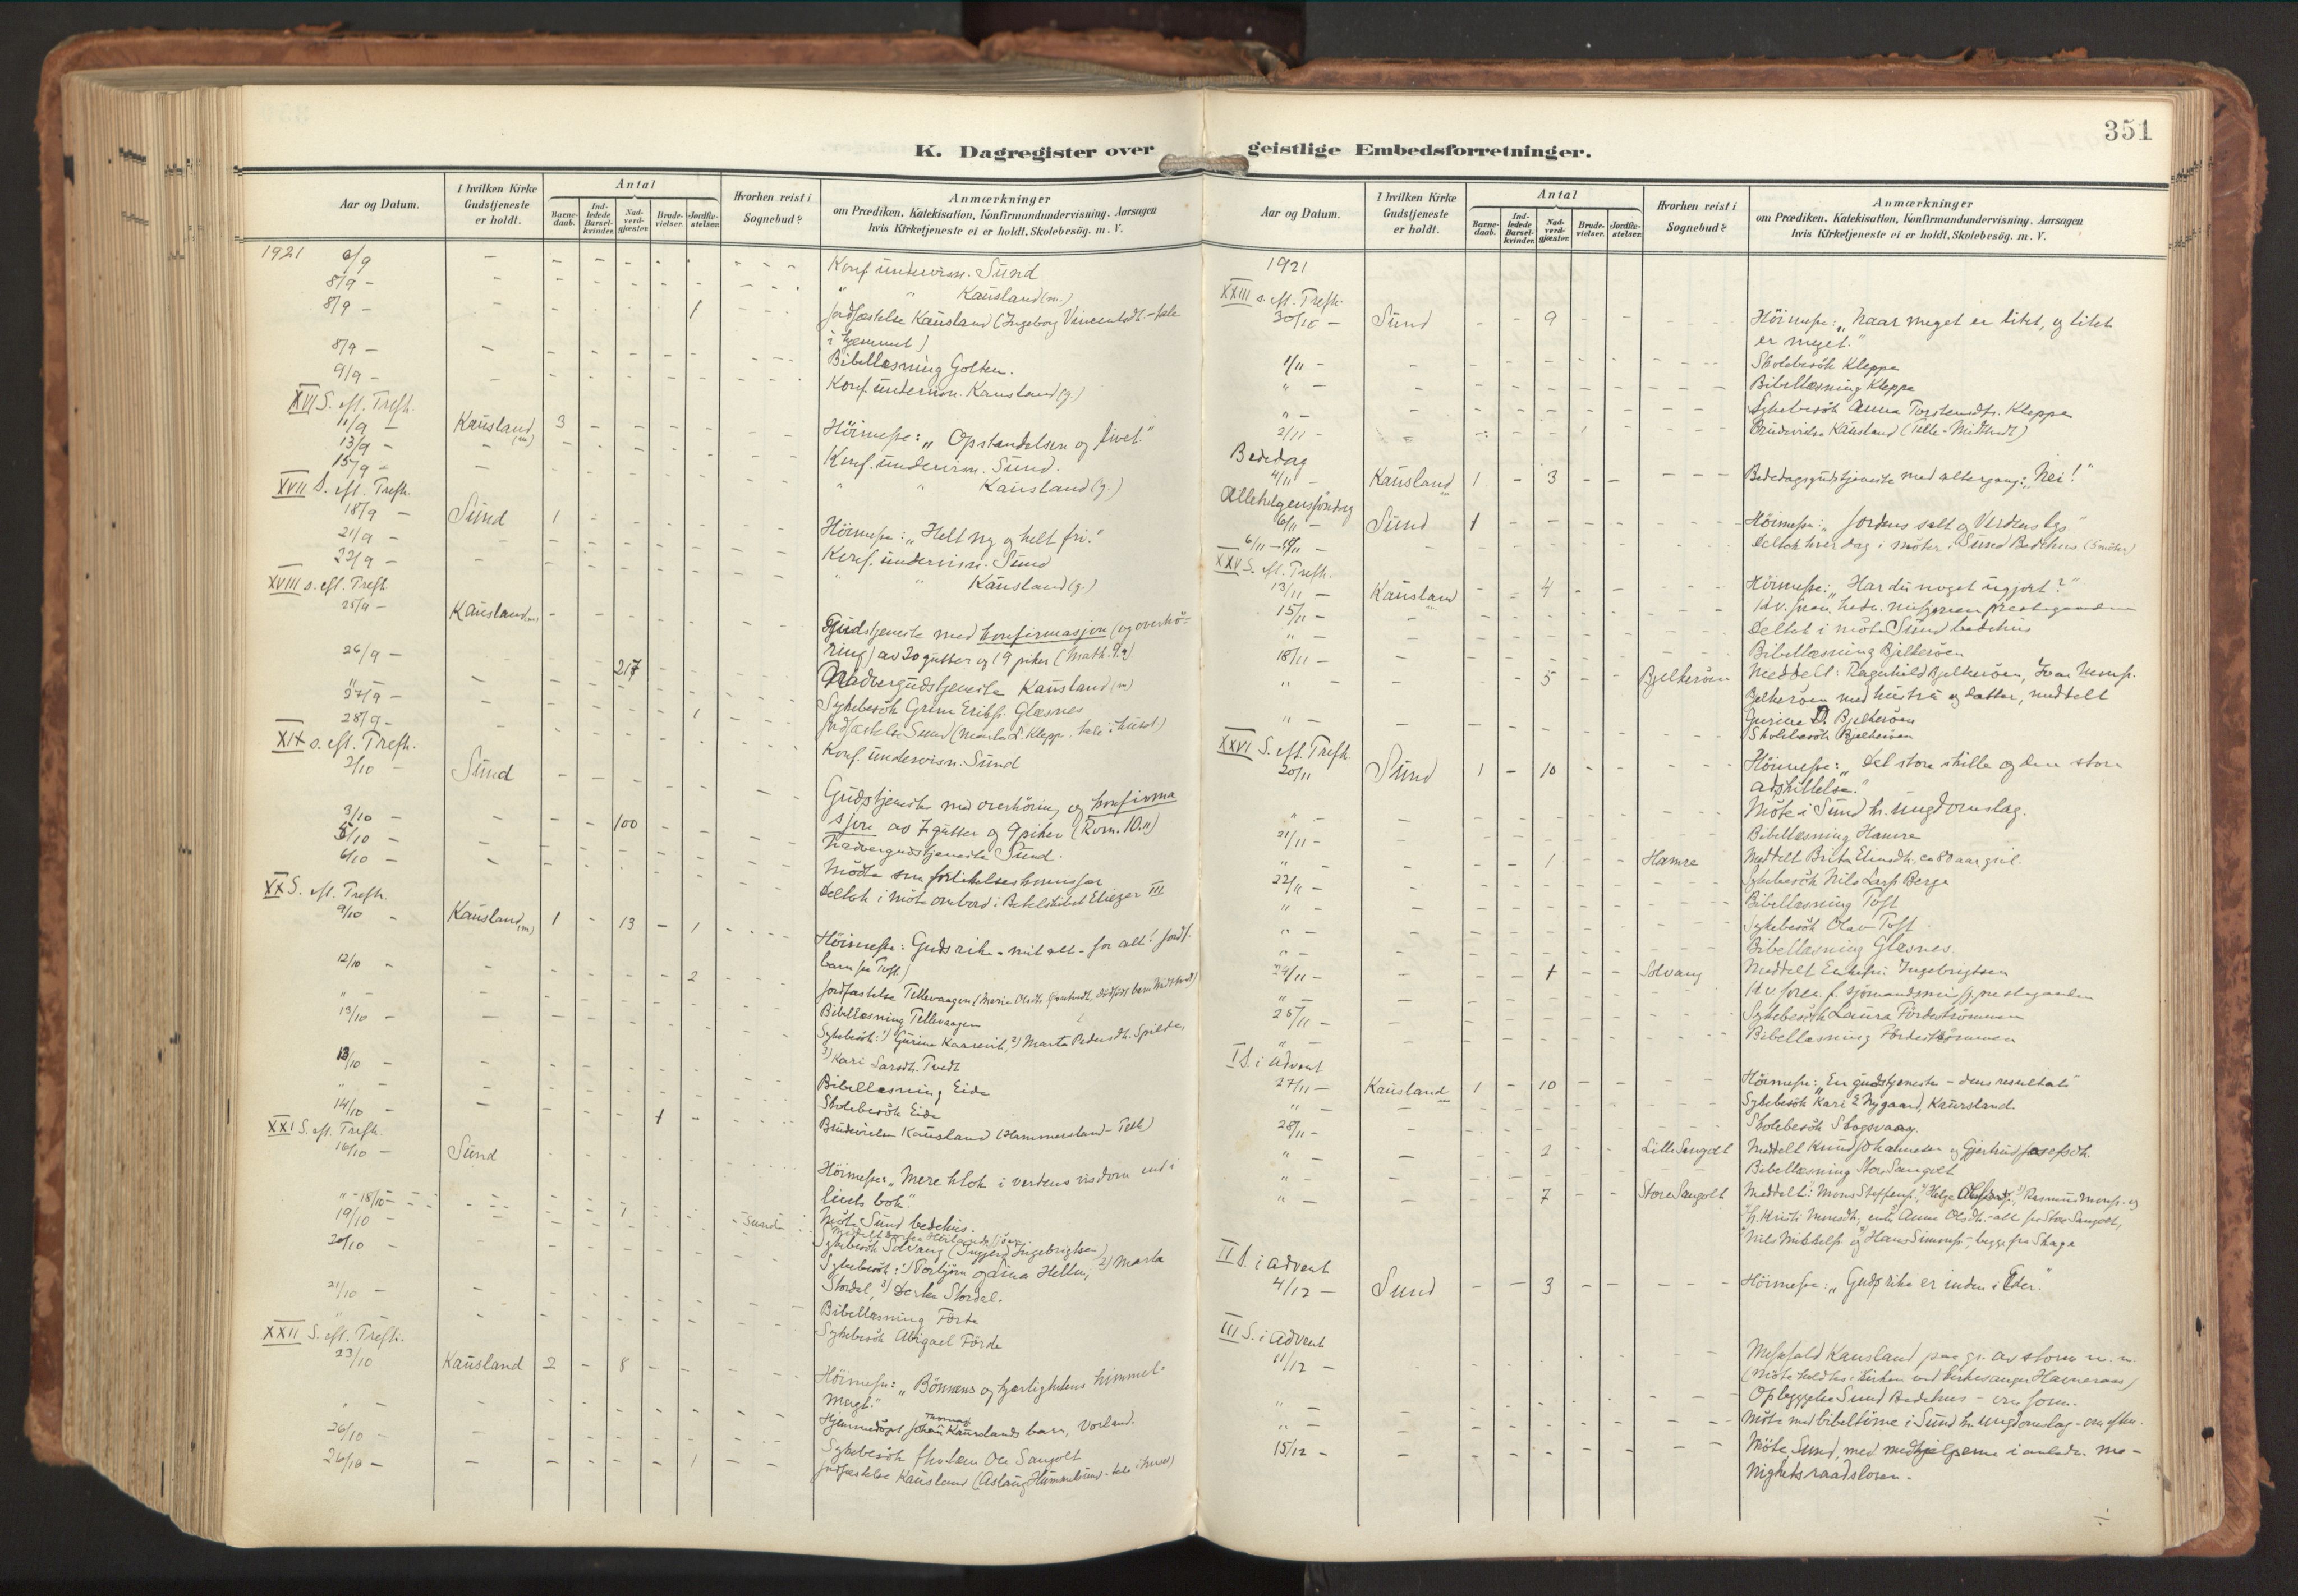 351
K. Dagregister over geistlige Embedsforretninger.
Aar og Datum.
I hvilken Kirke Gudstjeneste er holdt.
Antal
Barne-daab.
Ind-ledede Barsel-kvinder.
Nad-verd-gjæster.
Brude-vielser.
Jordfæ-stelser.
Hvorhen reist i Sognebud?
Anmærkninger
om Prædiken, Katekisation, Konfirmandundervisning, Aarsagen
hvis Kirketjeneste ei er holdt, Skolebesög. m. V.
1921 6/9 - Konf. undervisn. Sund
8/9 - " " Kausland (m.)
8/9 - 1 Jordfæstelse Kausland (Ingeborg Vincentsdt. - tale
i hjemmet)
8/9 - Bibellæsning Golten.
9/9 - Konf. undervisn. Kausland (g.)
XVI S. eft. Trefh.
11/9 - Kausland (m) 3 Höimesse: „Opstandelsen og livet."
13/9 - Konf. undervisn. Sund.
15/9 - " " Kausland (g.)
XVII S. eft. Trefh.
18/9 - Sund 1 Höimesse: „Helt ny og helt fri."
21/9 - Konf. undervisn. Sund
22/9 - " " Kausland (g.)
XVIII s. eft. Trefh.
25/9 - Kausland (m) Gudstjeneste med konfirmasjon (og overhö-
ring) av 20 gutter og 19 piker (Math. 9.9)
26/9 - 217 Nadvergudstjeneste Kausland (m)
" - Sykebesök Grim Eriks. Glæsnes
27/9 - 1 Jordfæstelse Sund (Marta L. Kleppe, tale i huset)
28/9 - Konf. undervisn. Sund
XIX s. eft. Trefh.
2/10 - Sund Gudstjeneste med overhöring og konfirma
sjon av 7 gutter og 9 piker (Rom. 10.11)
3/10 - 100 Nadvergudstjeneste Sund.
5/10 - Mötte som forlikelseskommissær
6/10 - Deltok i möte ombord i Betelskibet Eliezer III
XX S. eft. Trefh.
9/10 - Kausland (m) 1 - 13 - 1 Höimesse: Guds rike - mit alt - for alt! Jordf.
barn fra Toft.)
12/10 - 2 Jordfæstelse Tellevaagen
" - Bibellæsning Tellevaagen
13/10 - Sykebesök: 1) Gurine Kaarevik, 2) Marta Pedersdt. Spilde,
3) Kari Larsdt. Tvedt
13/10 - Bibellæsning Eide
" - Skolebesök Eide
14/10 - 1 Brudevielse Kausland (Hammersland - Telle)
XXI S. eft. Trefh.
16/10 - Sund Höimesse „Mere klok i verdens visdom end i
livets bok".
" - 18/10 - Möte Sund bedehus.
19/10 - 1 Sund
Sykebesök Solvang (Ingebrigtsen)
20/10 - Sykebesök: 1) Torbjörn og Lina Helle, 2) Marta
Stordal, 3) Stordal.
21/10 - Bibellæsning Förde
" Sykebesök Abigael Förde
XXII S. eft. Trefh.
23/10 Kausland 2 - 8 Höimesse: „Bönnens og kjærlighetens himmel-
magt."
" - Hjemmedöpt Johan Thomas Kauslands barn, Vorland.
26/10 - Sykebesök Ole Sangolt
26/10 - 1 Jordfæstelse Kausland (Aslaug - tale i huset)
Aar og Datum.
I hvilken Kirke Gudstjeneste er holdt.
Antal
Barne-daab.
Ind-ledede Barsel-kvinder.
Nad-verd-gjæster.
Brude-vielser.
Jordfæ-stelser.
Hvorhen reist i Sognebud?
Anmærkninger
om Prædiken, Katekisation, Konfirmandundervisning, Aarsagen
hvis Kirketjeneste ei er holdt, Skolebesög. m. V.
1921
XXIII s. eft. Trefh.
30/10 - Sund - - 9 Höimesse: „Naar meget er litet, og litet
er meget."
1/11 - Skolebesök Kleppe
" - Bibellæsning Kleppe
" - Sykebesök Anna Torstensdt. Kleppe
2/11 - Brudevielse Kausland (Telle - Midttvedt)
Bededag
4/11 - Kausland 1 - 3 Bededagsgudstjeneste med altergang: „Nei!"
Allehelgensöndag
6/11 - Sund 1 Höimesse: „Jordens salt og Verdens lys."
6/11 - 10/11 - Deltok hver dag i möter i Sund Bedehus. (5 möter)
XXV S. eft. Trefh.
13/11 - Kausland 4 Höimesse: „Har du noget ugjort?"
15/11 - Kv. foren.
" - Deltok i möte Sund bedehus
18/11 - Bibellæsning Bjelkeröen
" - 5 Bjelkeröen Meddelt: Ragnhild Bjelkeröen,
Bjelkeröen med hustru og datter, meddelt
Gurine D. Bjelkeröen
" - Skolebesök Bjelkeröen
XXVI S. eft. Trefh.
20/11 Sund 1 - 10 Höimesse: „Det store skille og den store
adskillelse."
" - Möte i Sund k. ungdomslag.
21/11 - Bibellæsning Hamre
" - 1 Hamre Meddelt Brita Elinsdt. ca 80 aar gml.
22/11 - Sykebesök Nils Larss Berge
" - Bibellæsning Toft
" - Sykebesök Olav Toft
" - Bibellæsning Glæsnes
24/11 - 1 Solvang Meddelt Enkefru Ingebrigtsen
" - Kv. foren. f. sjömandsmisj. prestegaarden
25/11 - Sykebesök Laura Fördeströmmen
" - Bibellæsning Fördeströmmen
I S. i advent
27/11 - Kausland 1 - 10 Höimesse: „En gudstjeneste - dens resultat"
" - Sykebesök Kari E Nygaard, Kausland.
28/11 - Skolebesök Skogsvaag.
" - 2 Lille Sangolt Meddelt Knud Johannesen og Gjertrud Josefsdt.
" - Bibellæsning Store Sangolt
" - 7 Store Sangolt Meddelt: Mons Steffens., Helge, Rasmus Monss. og
h. Kristi Monsdt., enke Anna Olsdt. - alle fra Store Sangolt,
Nils Mikkels. og Hans Simons., begge fra Skage
II S. i advent
4/12 - Sund - - 3 Höimesse: „Guds rike er inden i Eder."
III S. i advent
11/12 - Messefald Kausland paa gr. av storm m. m.
(Möte holdtes i kirken ved kirkesanger Hamrenes)
" - Oplæggelse Sund Bedehus - om form.
" - Möte med bibeltime i Sund k. ungdomslag - om eftm.
15/12 - Möte Sund, med medhjelperne i anledn. me-
nighetsraadsloven.